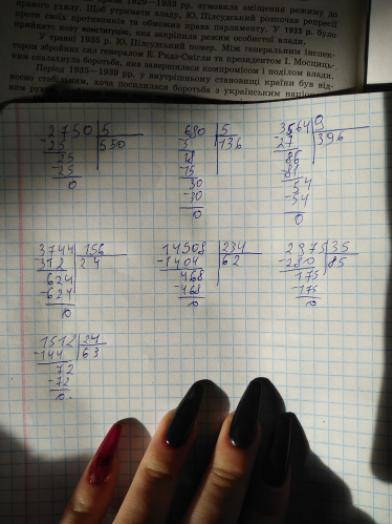 1929—1933 рр. зумовила зміщення режиму до
правого ухилу. Щоб утримати владу, Ю. Пілсудський розпочав репресії
проти своїх противників та обмежив права парламенту. У 1935 р. було
прийнято нову конституцію, яка закріпила режим особистої влади.
У травні 1935 р. Ю. Пілсудський помер. Між генеральним інспек-
тором збройних сил генералом Е. Ридз-Смігли та президентом І. Мосціць-
ким спалахнула боротьба, яка завершилася компромісом і поділом влади.
Період 1935—1939 рр. у внутрішньому становищі країни був від-
носно стабільним, хоча посилилася боротьба з українським
2750 5 680 5 3564 9
-25 550 5 136 -27 396
25 18 86
-25 -15 -81
0 30 54
-30 -54
0 0
3744 156 14508 234 2975 35
-312 24 -1404 62 -280 85
624 468 175
-624 -468 -175
0 0 0
1512 24
-144 63
72
-72
0